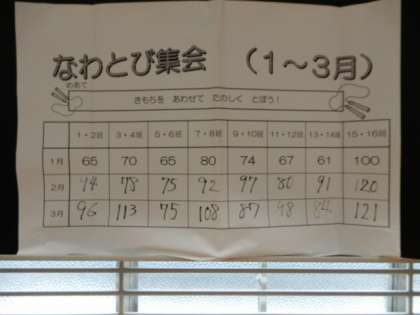 なわとび集会 (1～3月)
めあて
きもちを あわせて たのしく とぼう!
1・2班 3・4班 5・6班 7・8班 9・10班 11・12班 13・14班 15・16班
1月 65 70 65 80 74 67 61 100
2月 94 78 75 92 97 80 91 120
3月 96 113 75 108 87 98 84 121